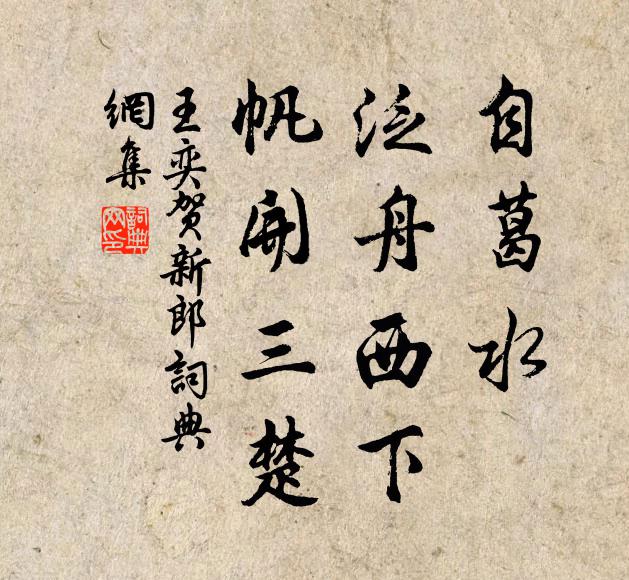 自葛水
泛舟西下
帆開三楚
王奕賀新郎詞典
網集
詞典網印